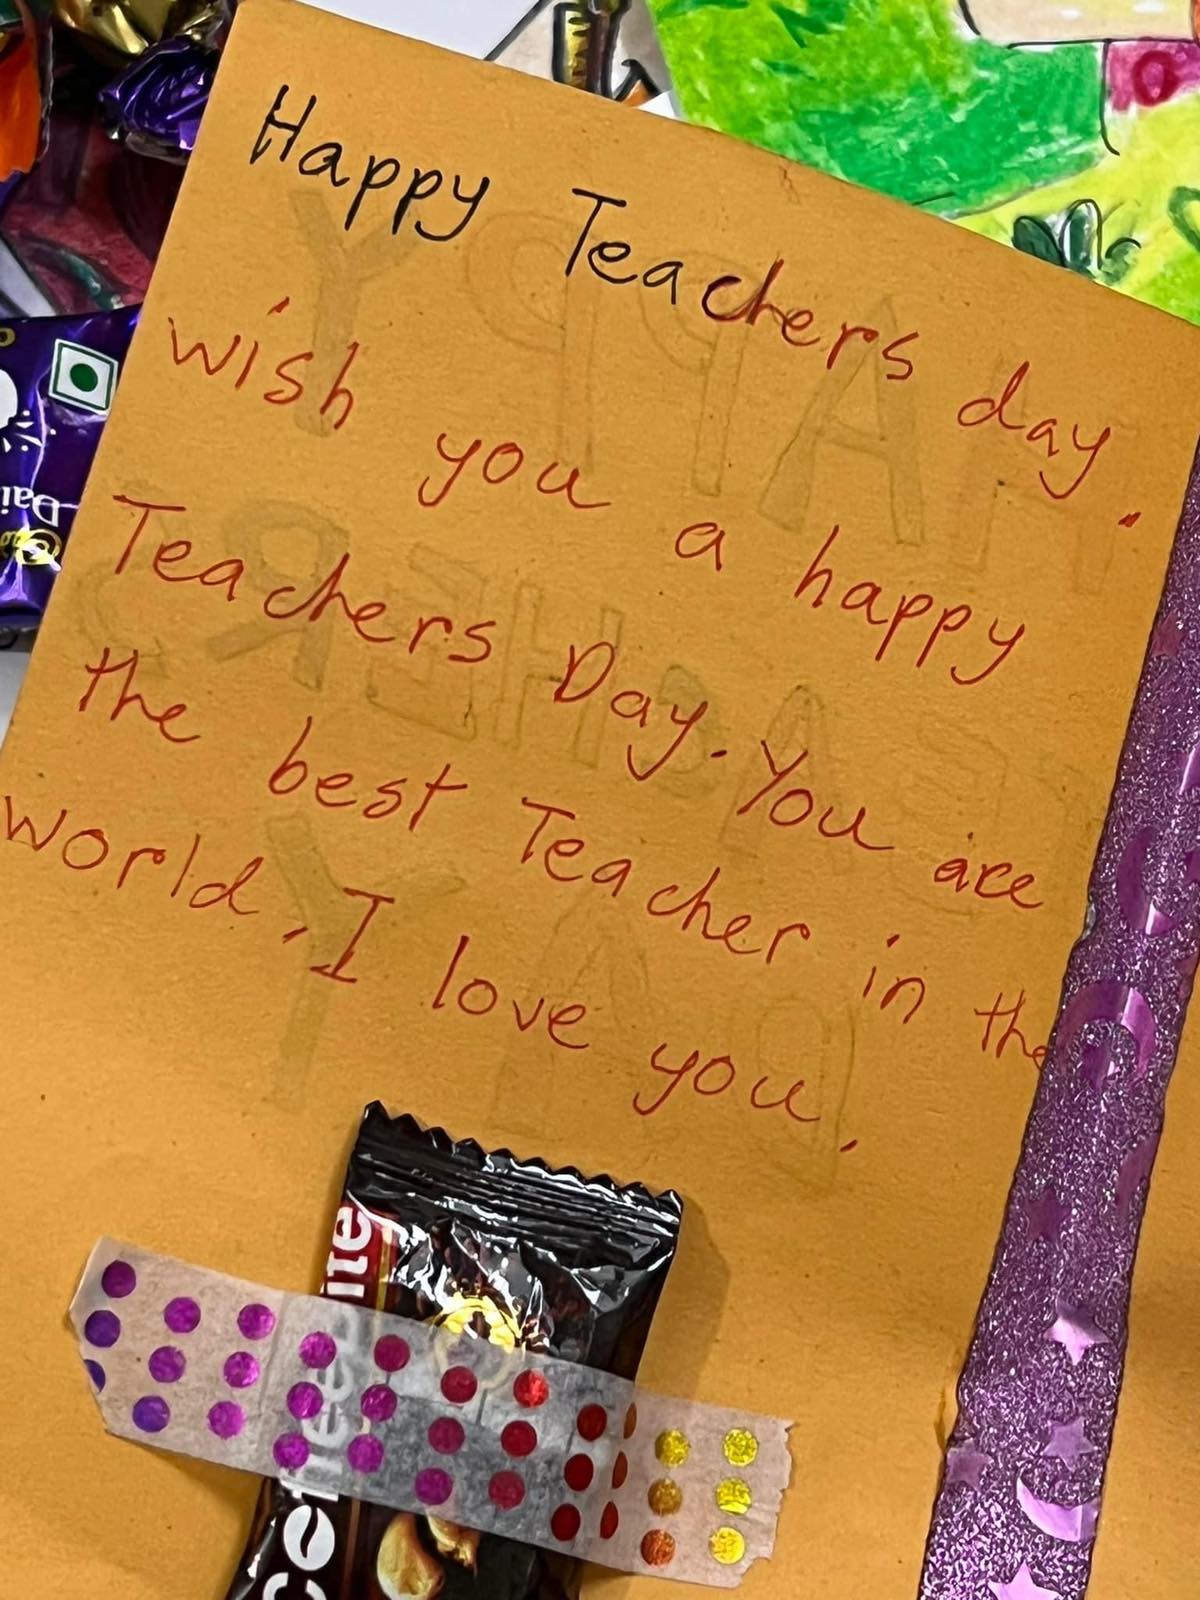 Happy Teachers day.
wish you a happy
Teachers Day. You are
the best Teacher in the
world, I love you.
Dai
ite
Coffee